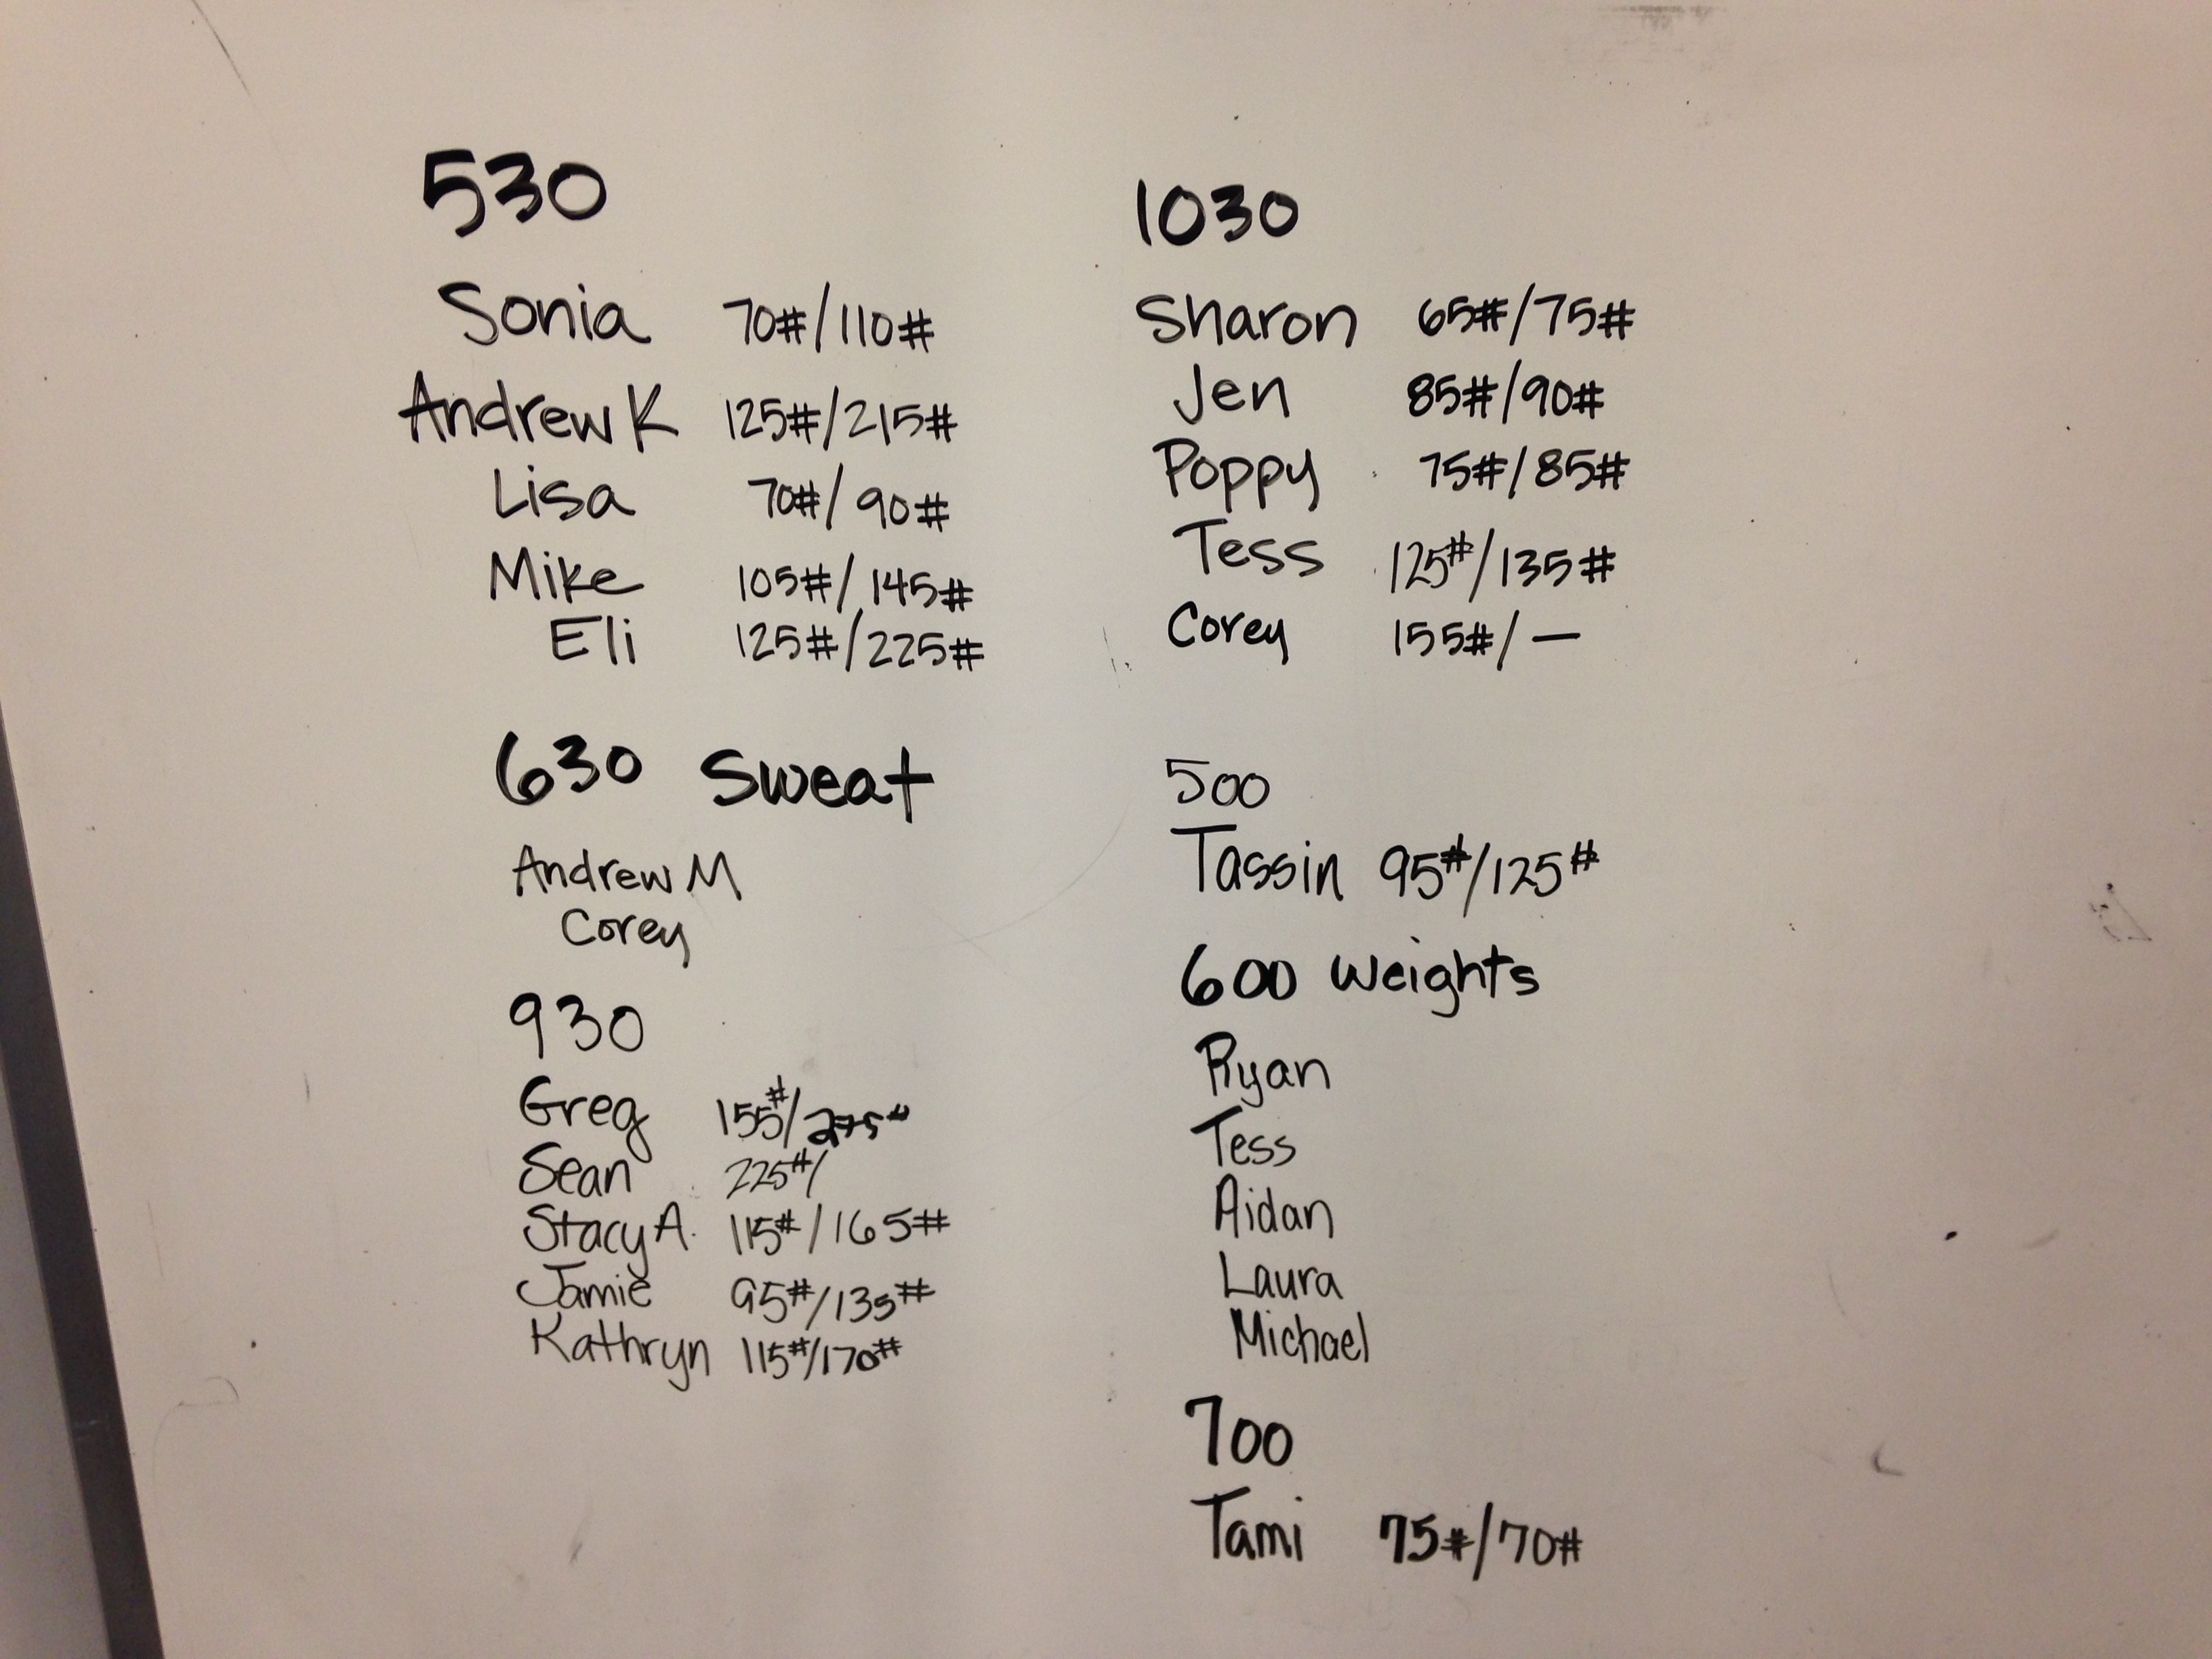 530
Sonia 70#/110#
Andrew K 125#/215#
Lisa 70#/90#
Mike 105#/145#
Eli 125#/225#
630 Sweat
Andrew M
Corey
930
Greg 155#/275#
Sean 225#/
Stacy A. 115#/165#
Jamie 95#/135#
Kathryn 115#/170#
1030
Sharon 65#/75#
Jen 85#/90#
Poppy 75#/85#
Tess 125#/135#
Corey 155#/—
500
Tassin 95#/125#
600 Weights
Ryan
Tess
Aidan
Laura
Michael
700
Tami 75#/70#